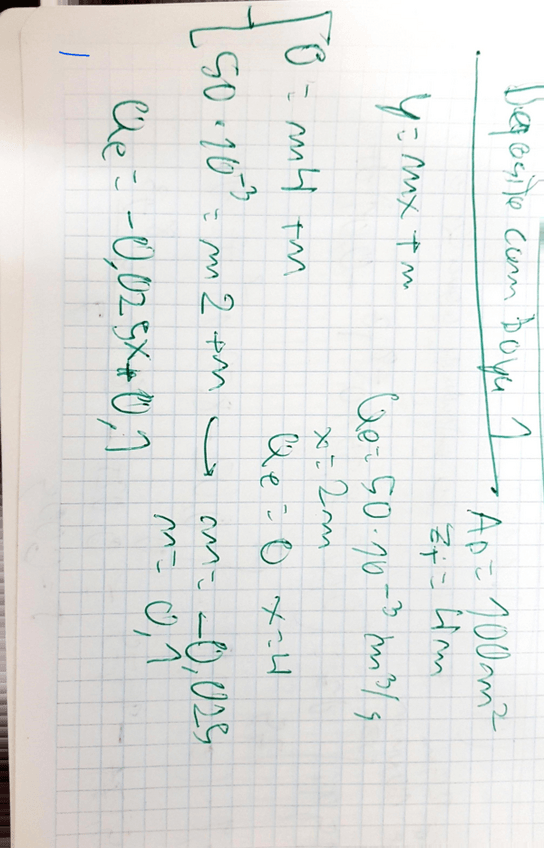 Deposito com boya 1
A₀ = 100m²
z₁ = 4m
y = mx + n
Qe = 50·10⁻³ m³/s
x = 2m
Qe = 0 x = 4
0 = m4 + n
50·10⁻³ = m2 + n → m = -0,025
n = 0,1
Qe = -0,025x + 0,1